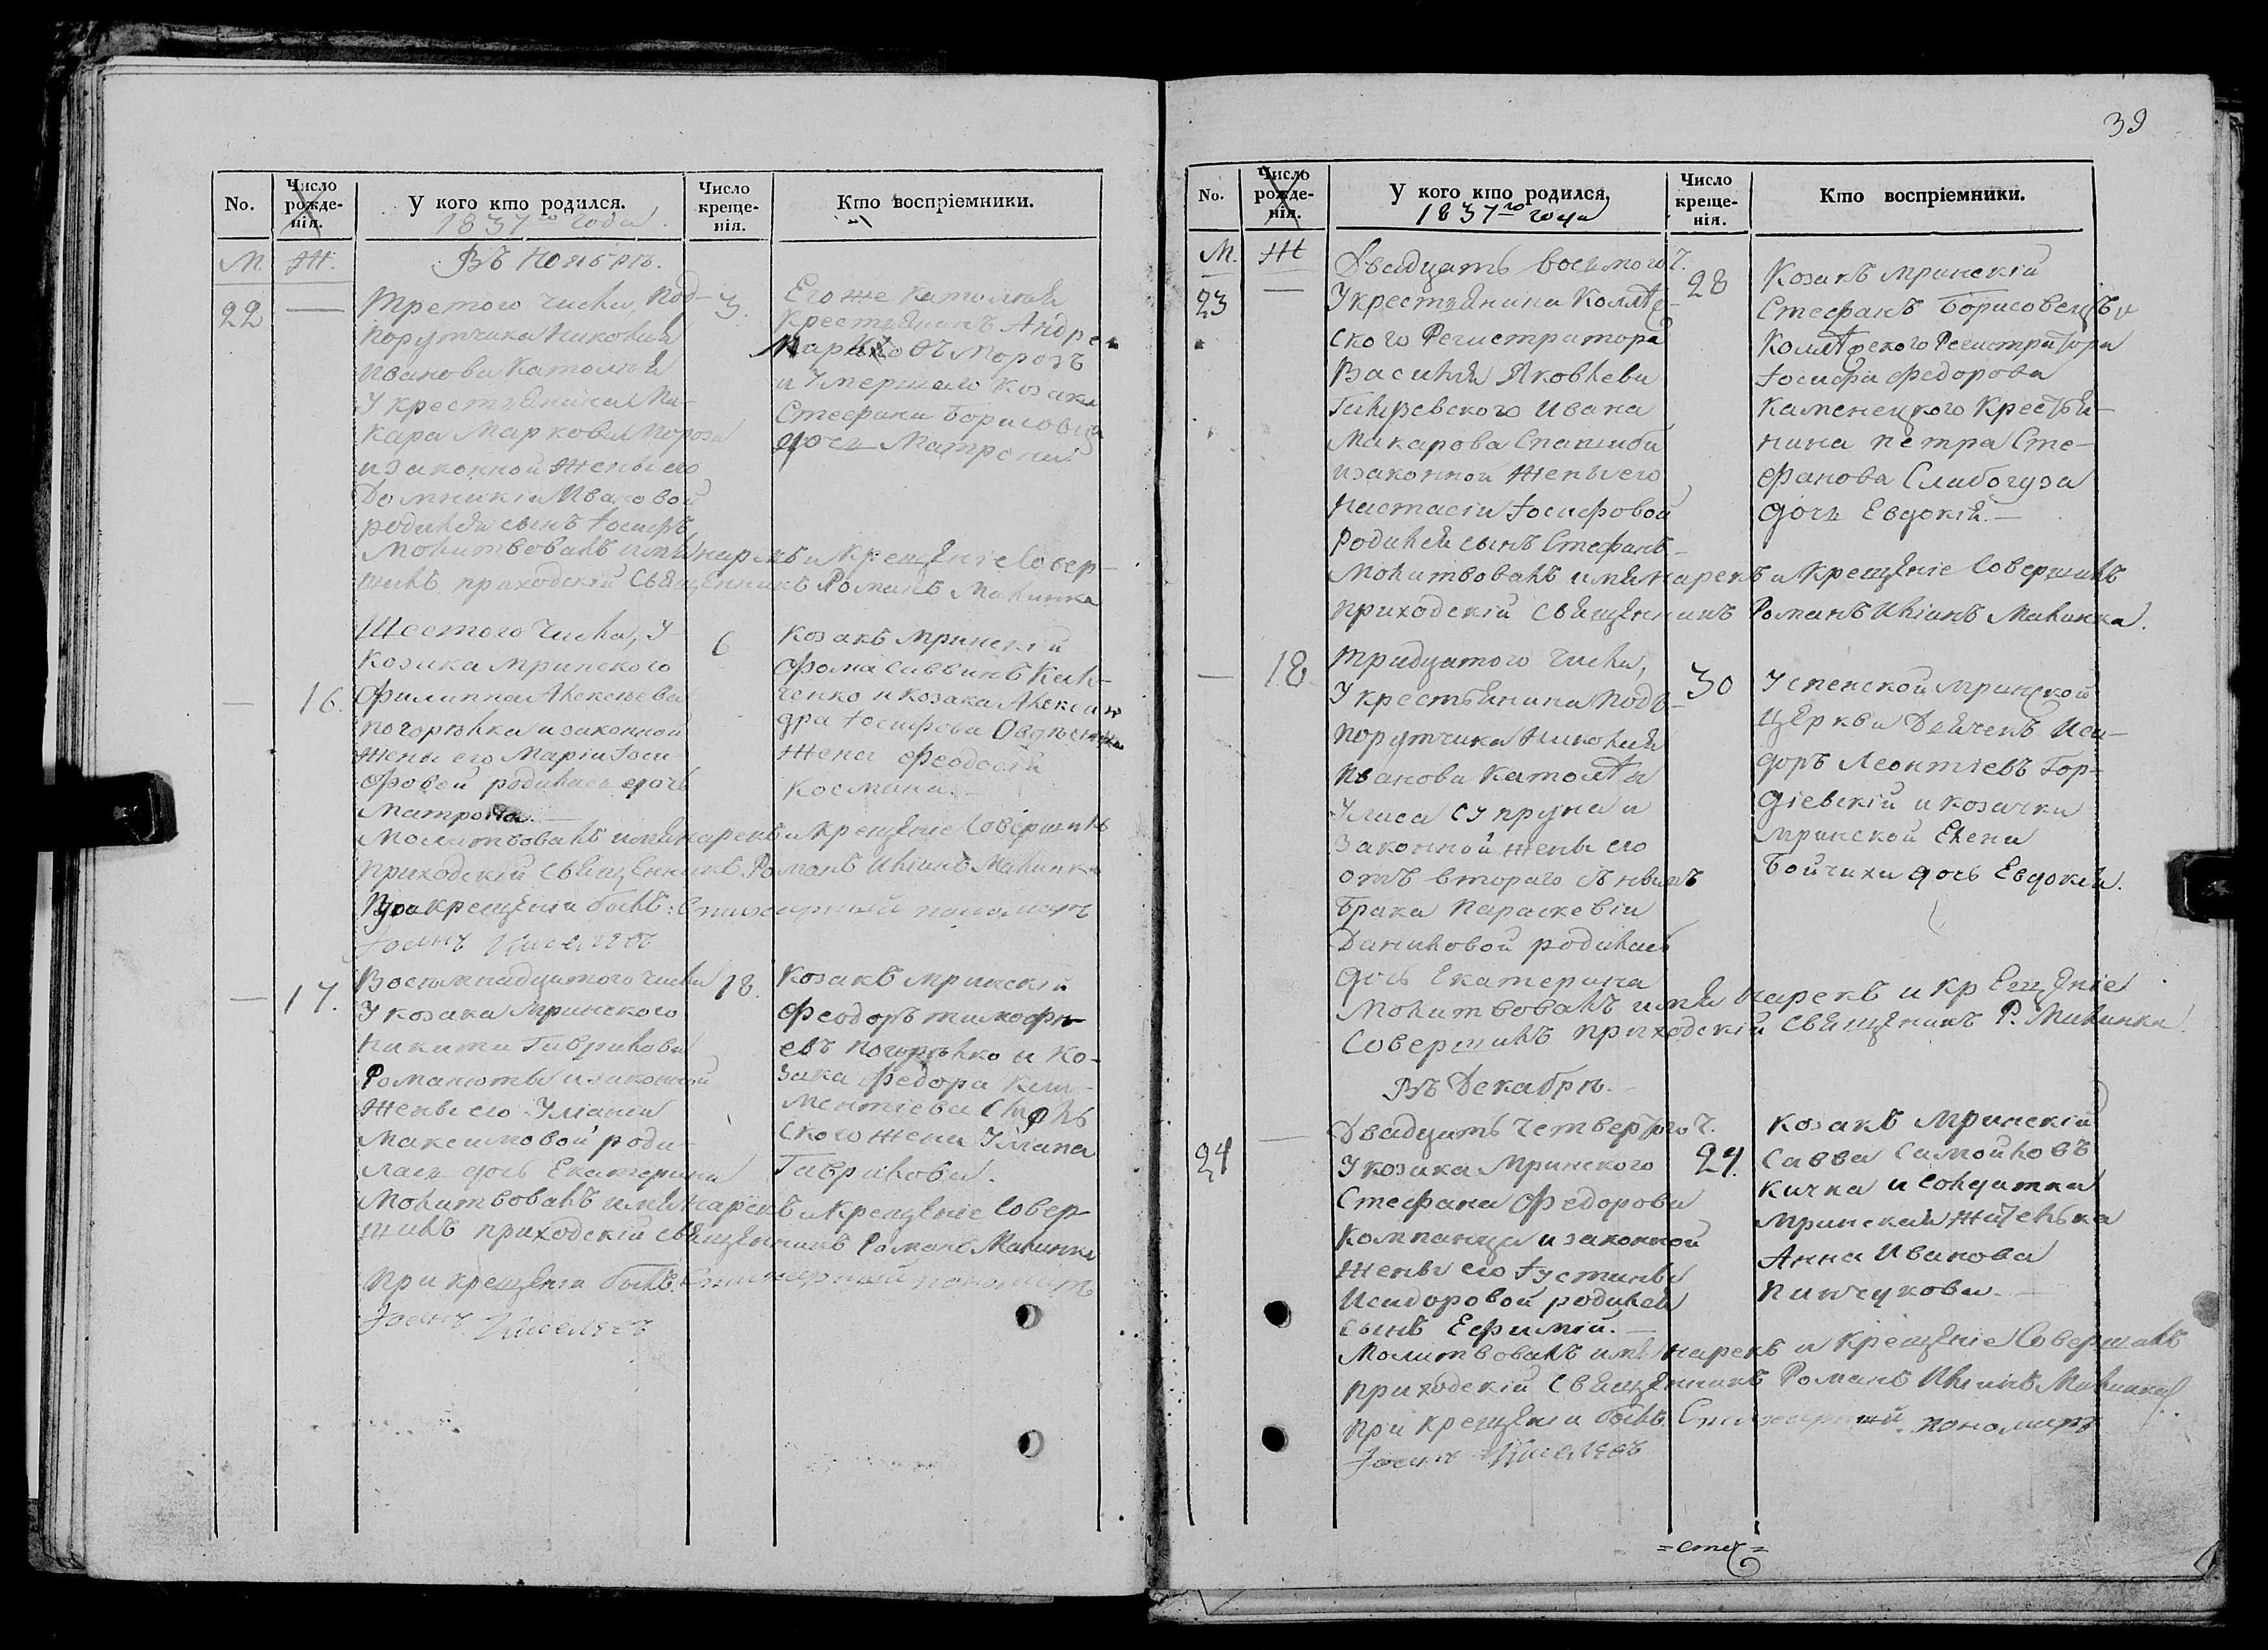 No.
Число рожде-нія.
У кого кто родился.
1837го года.
Число креще-нія.
Кто воспріемники.
М.
Ж.
Въ Ноябрѣ.
22
—
Третого числа, Под-
порутчика Николая
Иванова Катомѣя
У крестьянина Ма-
кара Маркова Мороза
и законной жены его
Домникіи Ивановой
родился сынъ Іосифъ
Молитвовалъ имя нарекъ и крещеніе совер-
шилъ приходскій священникъ Романъ Малинка
3.
Его же
Крестьянинъ Андрей
Марковъ Морозъ
и Умершаго козака
Стефана Борисовца
дочь Матрона.
—
16.
Шестого числа, У
Козака Мринского
Филиппа Алексѣева
Погорѣлка и законной
жены его Маріи Іоси-
фовой родилась дочь
Матрона. —
Молитвовалъ имя нарекъ и крещеніе совершилъ
приходскій священникъ Романъ Иліинъ Малинка
При крещеніи былъ: Стихарный пономарь
Іоанъ
6
Козакъ Мринскій
Фома Саввинъ
и козака Алексан-
дра Іосифова
жена Феодосія
Космина. —
—
17.
Восемнадцатого числа
У козака Мринского
Никиты Гаврилова
Романюты и законной
жены его Уліаніи
Максимовой роди-
лась дочь Екатерина
Молитвовалъ имя нарекъ и крещеніе совер-
шилъ приходскій священникъ Романъ Малинка
При крещеніи былъ: Стихарный пономарь
Іоанъ
18.
Козакъ Мринскій
Феодоръ Тимофѣ-
евъ Погорѣлко и ко-
зака Федора Кли-
ментіева
ского жена Уліана
Гаврилова.
39
No.
Число рожде-нія.
У кого кто родился.
1837го года
Число креще-нія.
Кто воспріемники.
М.
Ж
23
—
Двадцать восьмого ч.
У крестьянина Коллѣж-
ского Регистратора
Василія Яковлева
Ивана
Макарова
и законной жены его
Настасіи Іосифовой
родился сынъ Стефанъ —
Молитвовалъ имя нарекъ и крещеніе совершилъ
приходскій священникъ Романъ Иліинъ Малинка.
28
Козакъ Мринскій
Стефанъ Борисовецъ и
Коллѣжского Регистратора
Іосифа Федорова
Каменецкого Крестья-
нина Петра Сте-
фанова Слабогуза
дочь Евдокія. —
—
18
Тридцатого числа,
У крестьянина Подъ-
порутчика Николая
Иванова Катомѣя
Супруна и
законной жены его
отъ второго
брака Параскевіи
Даниловой родилась
дочь Екатерина
Молитвовалъ имя нарекъ и крещеніе
совершилъ приходскій священникъ Р. Малинка
30
Успенской Мринской
церкви Дьячекъ Иси-
доръ Леонтіевъ Гор-
діевскій и козачки
Мринской Елены
Бойчихи дочь Евдокія.
Въ Декабрѣ. —
24
—
Двадцать четвертого ч.
У козака Мринского
Стефана Федорова
Компанца и законной
жены его Іустины
Исидоровой родился
сынъ Ефимій. —
Молитвовалъ имя нарекъ и крещеніе совершилъ
приходскій священникъ Романъ Иліинъ Малинка
При крещеніи былъ: Стихарный пономарь
Іоанъ
24.
Козакъ Мринскій
Савва Самойловъ
Кичка и солдатка
Мринская жителька
Анна Иванова
Пинчукова. —